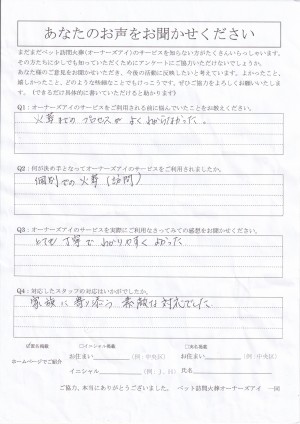 あなたのお声をお聞かせください
まだまだペット訪問火葬(オーナーズアイ)のサービスを知らない方がたくさんいらっしゃいます。
その方たちに少しでも知っていただくためにアンケートにご協力いただけないでしょうか。
あなた様のご意見をお聞かせいただき、今後の活動に反映したいと考えています。よかったこと、
嬉しかったこと、どのような些細なことでもけっこうです。ぜひご協力をよろしくお願いいたします。
(できるだけ具体的に書いていただけると助かります)
Q1:オーナーズアイのサービスをご利用される前に悩んでいたことをお教えください。
火葬までのプロセスがよくわからなかった。
Q2:何が決め手となってオーナーズアイのサービスをご利用されましたか。
個別での火葬(訪問)
Q3:オーナーズアイのサービスを実際にご利用なさってみての感想をお聞かせください。
とても丁寧でわかりやすくよかった
Q4:対応したスタッフの対応はいかがでしたか。
家族に寄り添う素敵な対応でした
匿名掲載 □イニシャル掲載 □実名掲載
ホームページでご紹介
お住まい (例:中央区) お住まい (例:中央区)
イニシャル (例:J.H) 氏名
ご協力、本当にありがとうございました。 ペット訪問火葬オーナーズアイ 一同